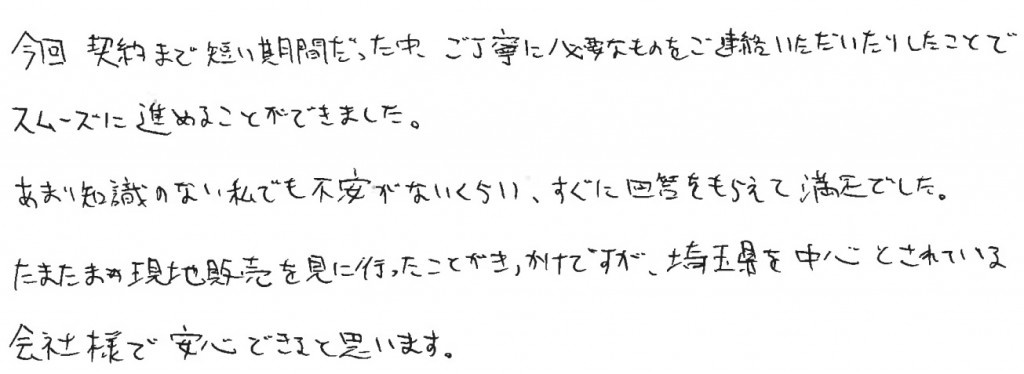 今回 契約まで短い期間だった中、ご丁寧に必要なものをご連絡いただいたりしたことで
スムーズに進めることができました。
あまり知識のない私でも不安がないくらい、すぐに回答をもらえて満足でした。
たまたまめ現地販売を見に行ったことがきっかけですが、埼玉県を中心とされている
会社様で安心できると思います。